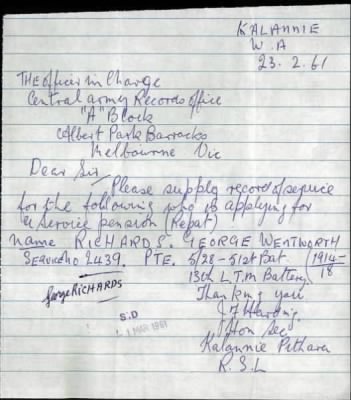 KALANNIE
W.A
23.2.61
The Officer in Charge
Central Army Records Office
"A" Block
Albert Park Barracks
Melbourne Vic
Dear Sir
Please supply record of service
for the following who is applying for
a service pension (Repat)
Name RICHARDS. GEORGE WENTWORTH
Service No 2439. PTE. 5/28 - 51st Bat (1914-
18
13th L.T.M Battery
George RICHARDS
Thanking you
J F Harding
Hon Sec
S.D
MAR 1961
Kalannie Pithara
R.S.L